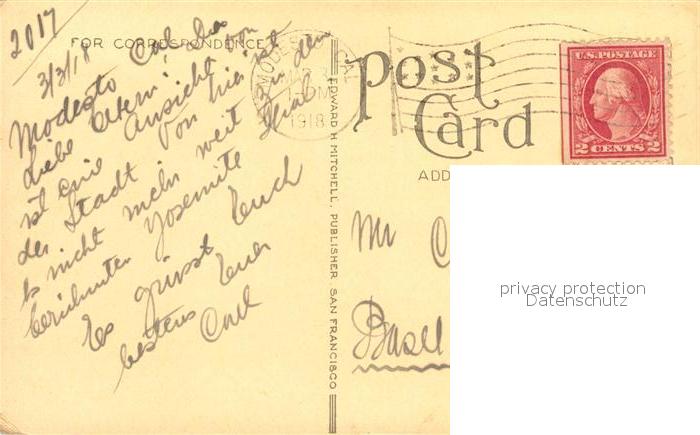 2017
FOR CORRESPONDENCE
3/3/18
Modesto Cal
Liebe Eltern! Das
ist eine Ansicht von
der Stadt. Von hier ist
es nicht mehr weit zu dem
berühmten Yosemite
Es grüsst Euch
bestens Euer
Carl
EDWARD H MITCHELL, PUBLISHER, SAN FRANCISCO
MODESTO CAL
1918
Post
Card
U.S. POSTAGE
2 CENTS 2
ADD
Mr
Basel
privacy protection
Datenschutz